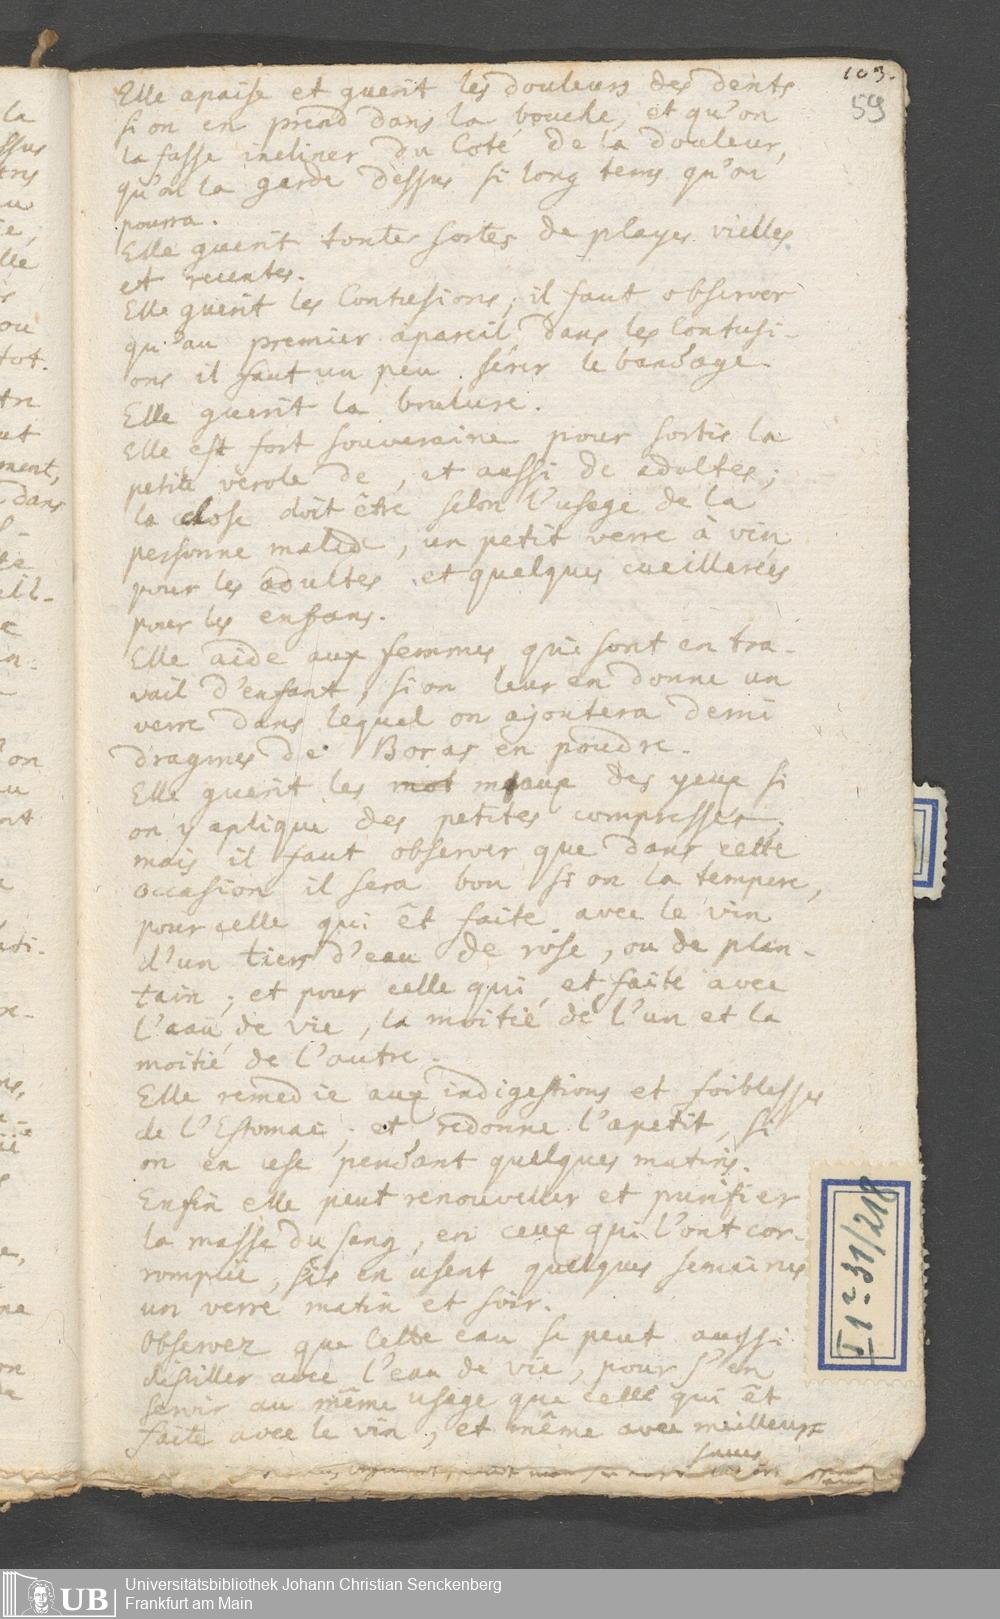 103.
59
Elle apaise et guerit les douleurs des dents
si on en prend dans la bouche, et qu'on
la fasse incliner du Coté de la douleur,
qu'on la garde dessus si long tems qu'on
pourra.
Elle guerit toutes sortes de playes vielles
et recentes.
Elle guerit les Contusions, il faut observer
qu'au premier apareil dans les Contusi-
ons il faut un peu sérer le bandage.
Elle guerit la brulure.
Elle est fort souveraine pour sortir la
petite verole de, et aussi de adultes;
la dose doit être selon l'usage de la
personne malade, un petit verre à vin
pour les adultes et quelques cueillerées
pour les enfans.
Elle aide aux femmes qui sont en tra-
vail d'enfant, si on leur en donne un
verre dans lequel on ajoutera demi
dragmes de Boras en poudre.
Elle guerit les maux des yeux si
on y aplique des petites compresses,
mais il faut observer que dans cette
occasion il sera bon si on la tempere,
pour celle qui êt faite avec le vin
d'un tiers d'eau de rose, ou de plan-
tain; et pour celle qui et faite avec
l'eau de vie, la moitié de l'un et la
moitié de l'autre.
Elle remedie aux indigestions et foiblesses
de l'Estomac, et redonne l'apetit, si
on en use pendant quelques matins.
Enfin elle peut renouveller et purifier
la masse du sang, en ceux qui l'ont cor-
rompüe, s'ils en usent quelques semaines
un verre matin et soir.
Observez que cette eau se peut aussi
distiller avec l'eau de vie, pour s'en
servir au même usage que celle qui êt
faite avec le vin, et même avec meilleur
I 1=31/218
UB
Universitätsbibliothek Johann Christian Senckenberg
Frankfurt am Main